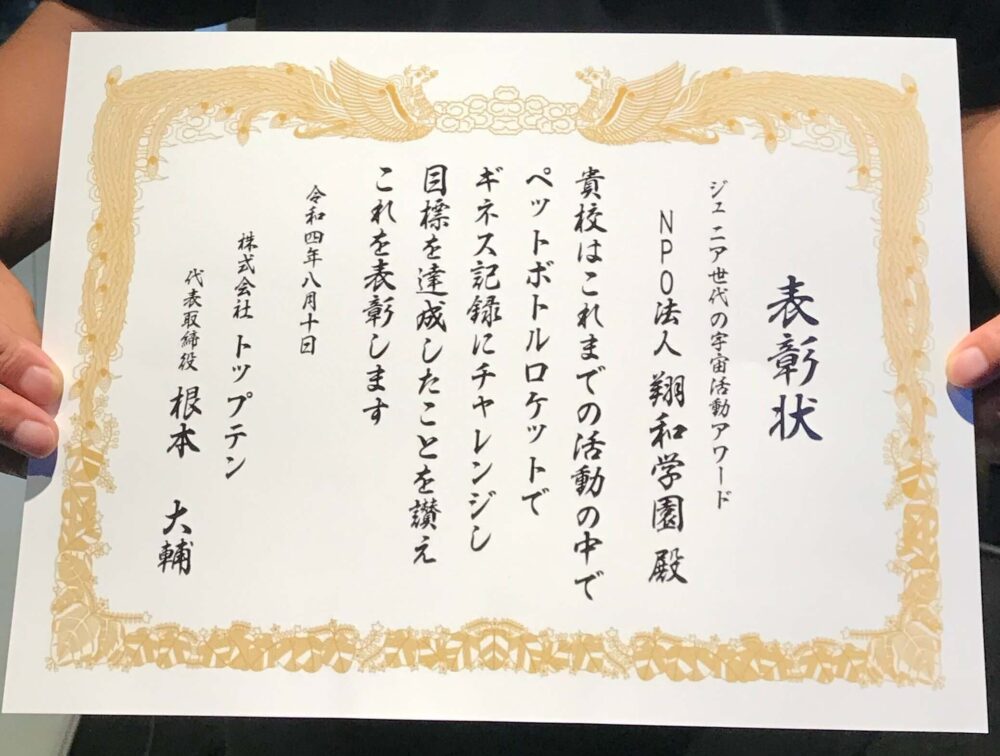 表彰状
ジュニア世代の宇宙活動アワード
NPO法人 翔和学園 殿
貴校はこれまでの活動の中で
ペットボトルロケットで
ギネス記録にチャレンジし
目標を達成したことを讃え
これを表彰します
令和四年八月十日
株式会社 トップテン
代表取締役 根本 大輔